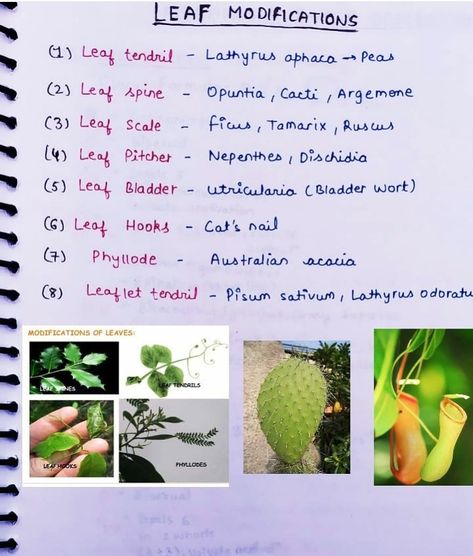 LEAF MODIFICATIONS
(1) Leaf tendril - Lathyrus aphaca → Peas
(2) Leaf spine - Opuntia, Cacti, Argemone
(3) Leaf Scale - Ficus, Tamarix, Ruscus
(4) Leaf Pitcher - Nepenthes, Dischidia
(5) Leaf Bladder - Utricularia (Bladder wort)
(6) Leaf Hooks - Cat's nail
(7) Phyllode - Australian acacia
(8) Leaflet tendril - Pisum sativum, Lathyrus odoratu
MODIFICATIONS OF LEAVES:
LEAF SPINES
LEAF TENDRILS
LEAF HOOKS
PHYLLODES